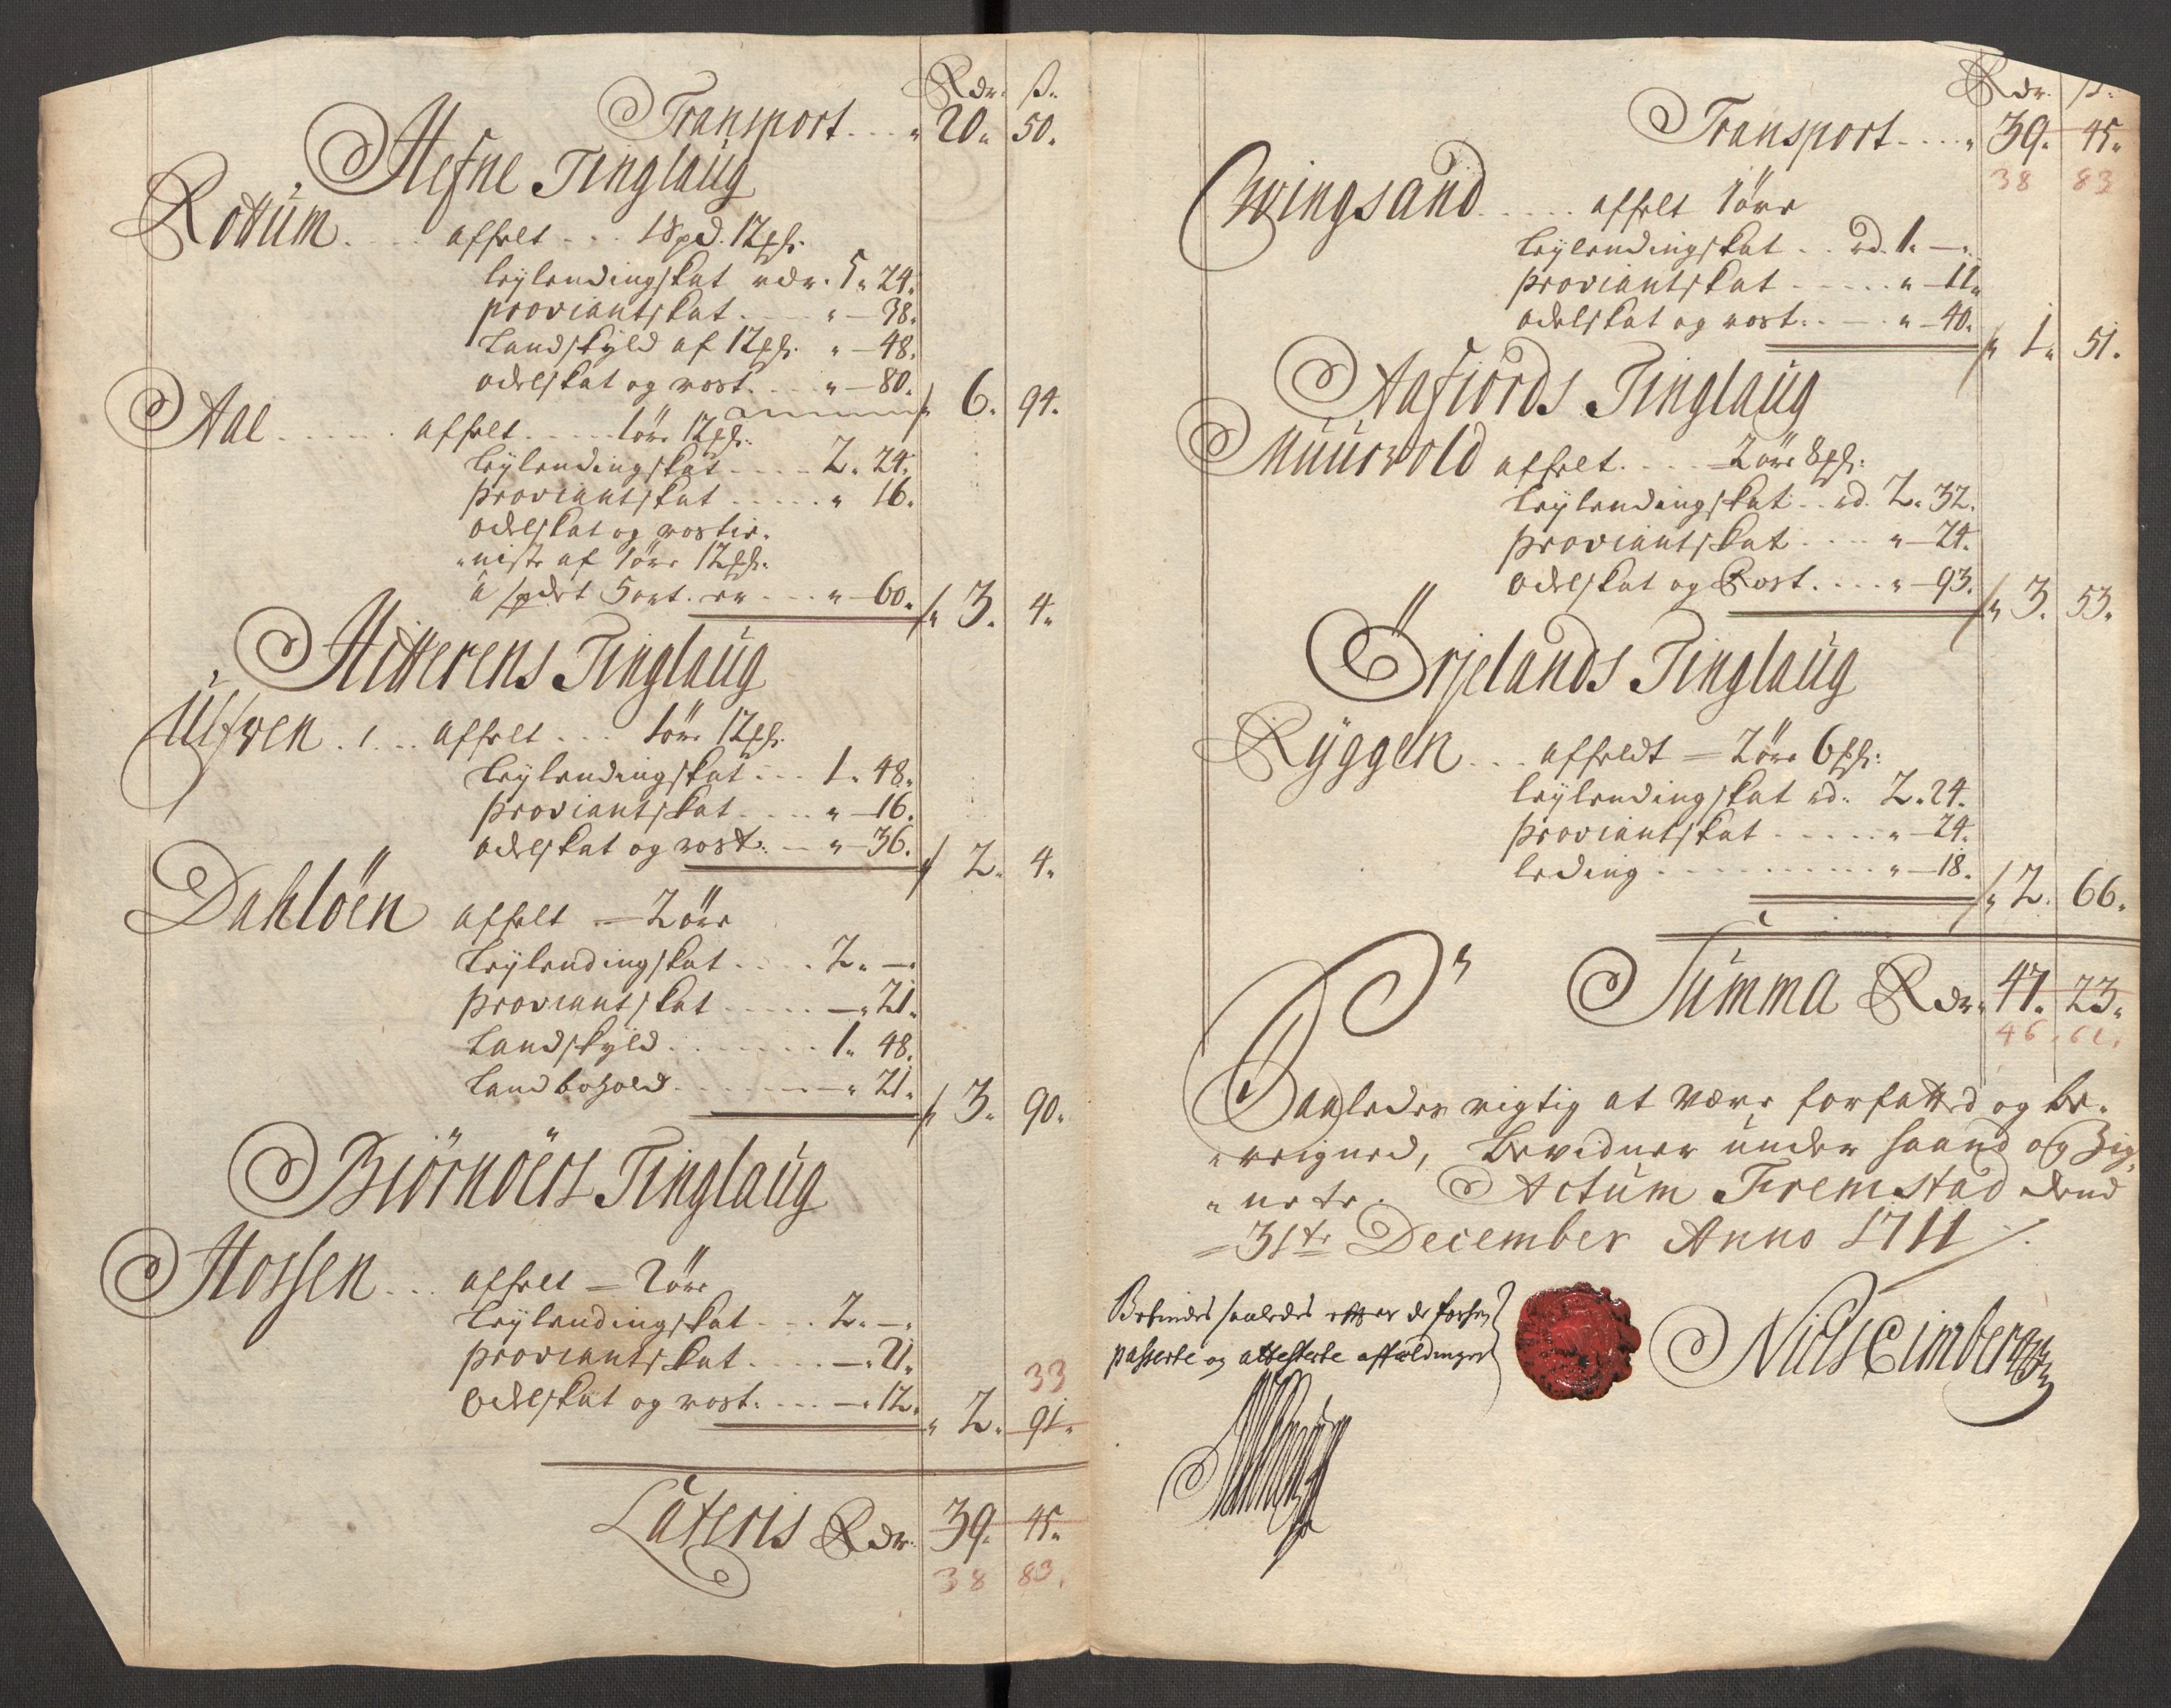 Rdr. ß.
Transport . . . „ 20. 50.
Hefne Tinglaug
Rottum . . . . affelt . . . 1 Spd. 12 ß.
leylendingskat rdr. 5. 24.
proviantskat . . . „ — 38.
Landskyld af 12 ß. „ — 48.
odelskat og rost . . . „ — 80. 6. 94.
Aae . . . . . . affelt . . . . . 1 öre 12 ß.
Leylendingskat . . . . 2. 24.
proviantskat . . . . . „ 16.
odelskat og rostie-
„niste af 1 öre 12 ß.
á 5 ort . . . „ — 60. 3. 4.
Hitterens Tinglaug
Ulfven . . . . affelt . . . 1 öre 12 ß.
Leylendingskat . . . 1. 48.
proviantskat . . . . „ — 16.
odelskat og rost: — „ — 36. 2. 4.
Dahlöen affelt — 2 öre
Leylendingskat . . . . 2. —.
proviantskat . . . . . —. 21.
Landskyld . . . . . . . 1. 48.
Landbohold . . . . . —. 21. 3. 90.
Biörnöers Tinglaug
Hossen . . . affelt — 2 öre
Leylendingskat . . . 2. —.
proviantskat . . . . —. 21. 33
odelskat og rost. . . . —. 12. „ 2. 91.
Lateris Rdr. 39. 45.
38 83.
Rdr. ß.
Transport . . . . „ 39. 45.
38 83
Qwingsand . . . . . affelt 1 öre
Leylendingskat . . rd. 1. —.
proviantskat . . . . . „ — 11.
odelskat og rost: . — . „ — 40. 1. 51.
Aafiords Tinglaug
Muurvold affelt . . . . 2 öre 8 ß.
Leylendingskat . . rd. 2. 32.
proviantskat . . . . „ — 24.
odelskat og Rost . . . . „ — 93. 3. 53.
Örjelands Tinglaug
Ryggen . . . affeldt — 2 öre 6 ß.
leylendingskat rd. 2. 24.
proviantskat . . . . . „ — 24.
leding . . . . . . . . . . . „ — 18. 2. 66.
Summa Rdr. 47. 23.
46. 61.
Saaledes rigtig at være forfatted og be-
„reigned, bevidner under haand og Zig-
„nete. Actum Fremstad dend
= 31te December Anno 1711 /.
Befindes saaledes efter de
passerte og attesterte affældinger
Niels Eimberg